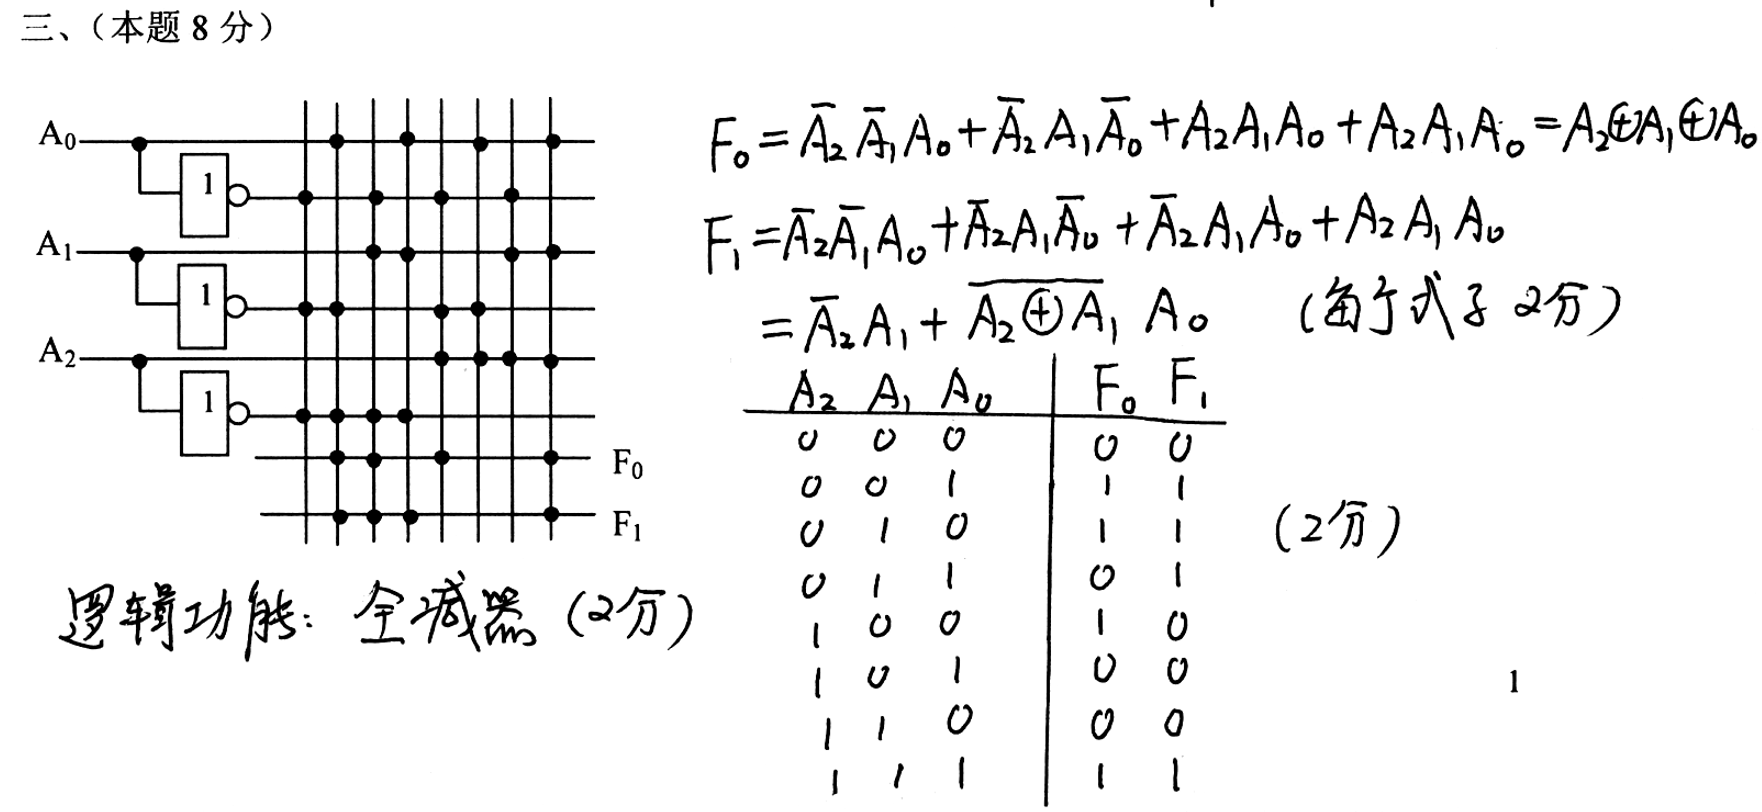 三、（本题 8 分）
A₀
1
A₁
1
A₂
1
F₀
F₁
F₀ = A̅₂ A̅₁ A₀ + A̅₂ A₁ A̅₀ + A₂ A₁ A₀ + A₂ A₁ A₀ = A₂⊕A₁⊕A₀
F₁ = A̅₂ A̅₁ A₀ + A̅₂ A₁ A̅₀ + A̅₂ A₁ A₀ + A₂ A₁ A₀
= A̅₂ A₁ + \overline{A₂ ⊕ A₁} A₀ （每个式子 2分）
A₂ A₁ A₀ F₀ F₁
0 0 0 0 0
0 0 1 1 1
0 1 0 1 1
（2分）
0 1 1 0 1
1 0 0 1 0
1 0 1 0 0
1 1 0 0 0
1 1 1 1 1
逻辑功能: 全减器（2分）
1